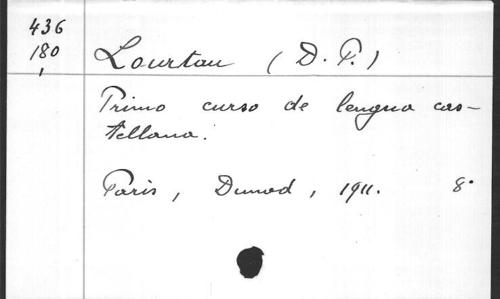 436
180
Lourtau (D. P.)
Primo curso de lengua cas-
tellana.
Paris, Dunod, 1911. 8°